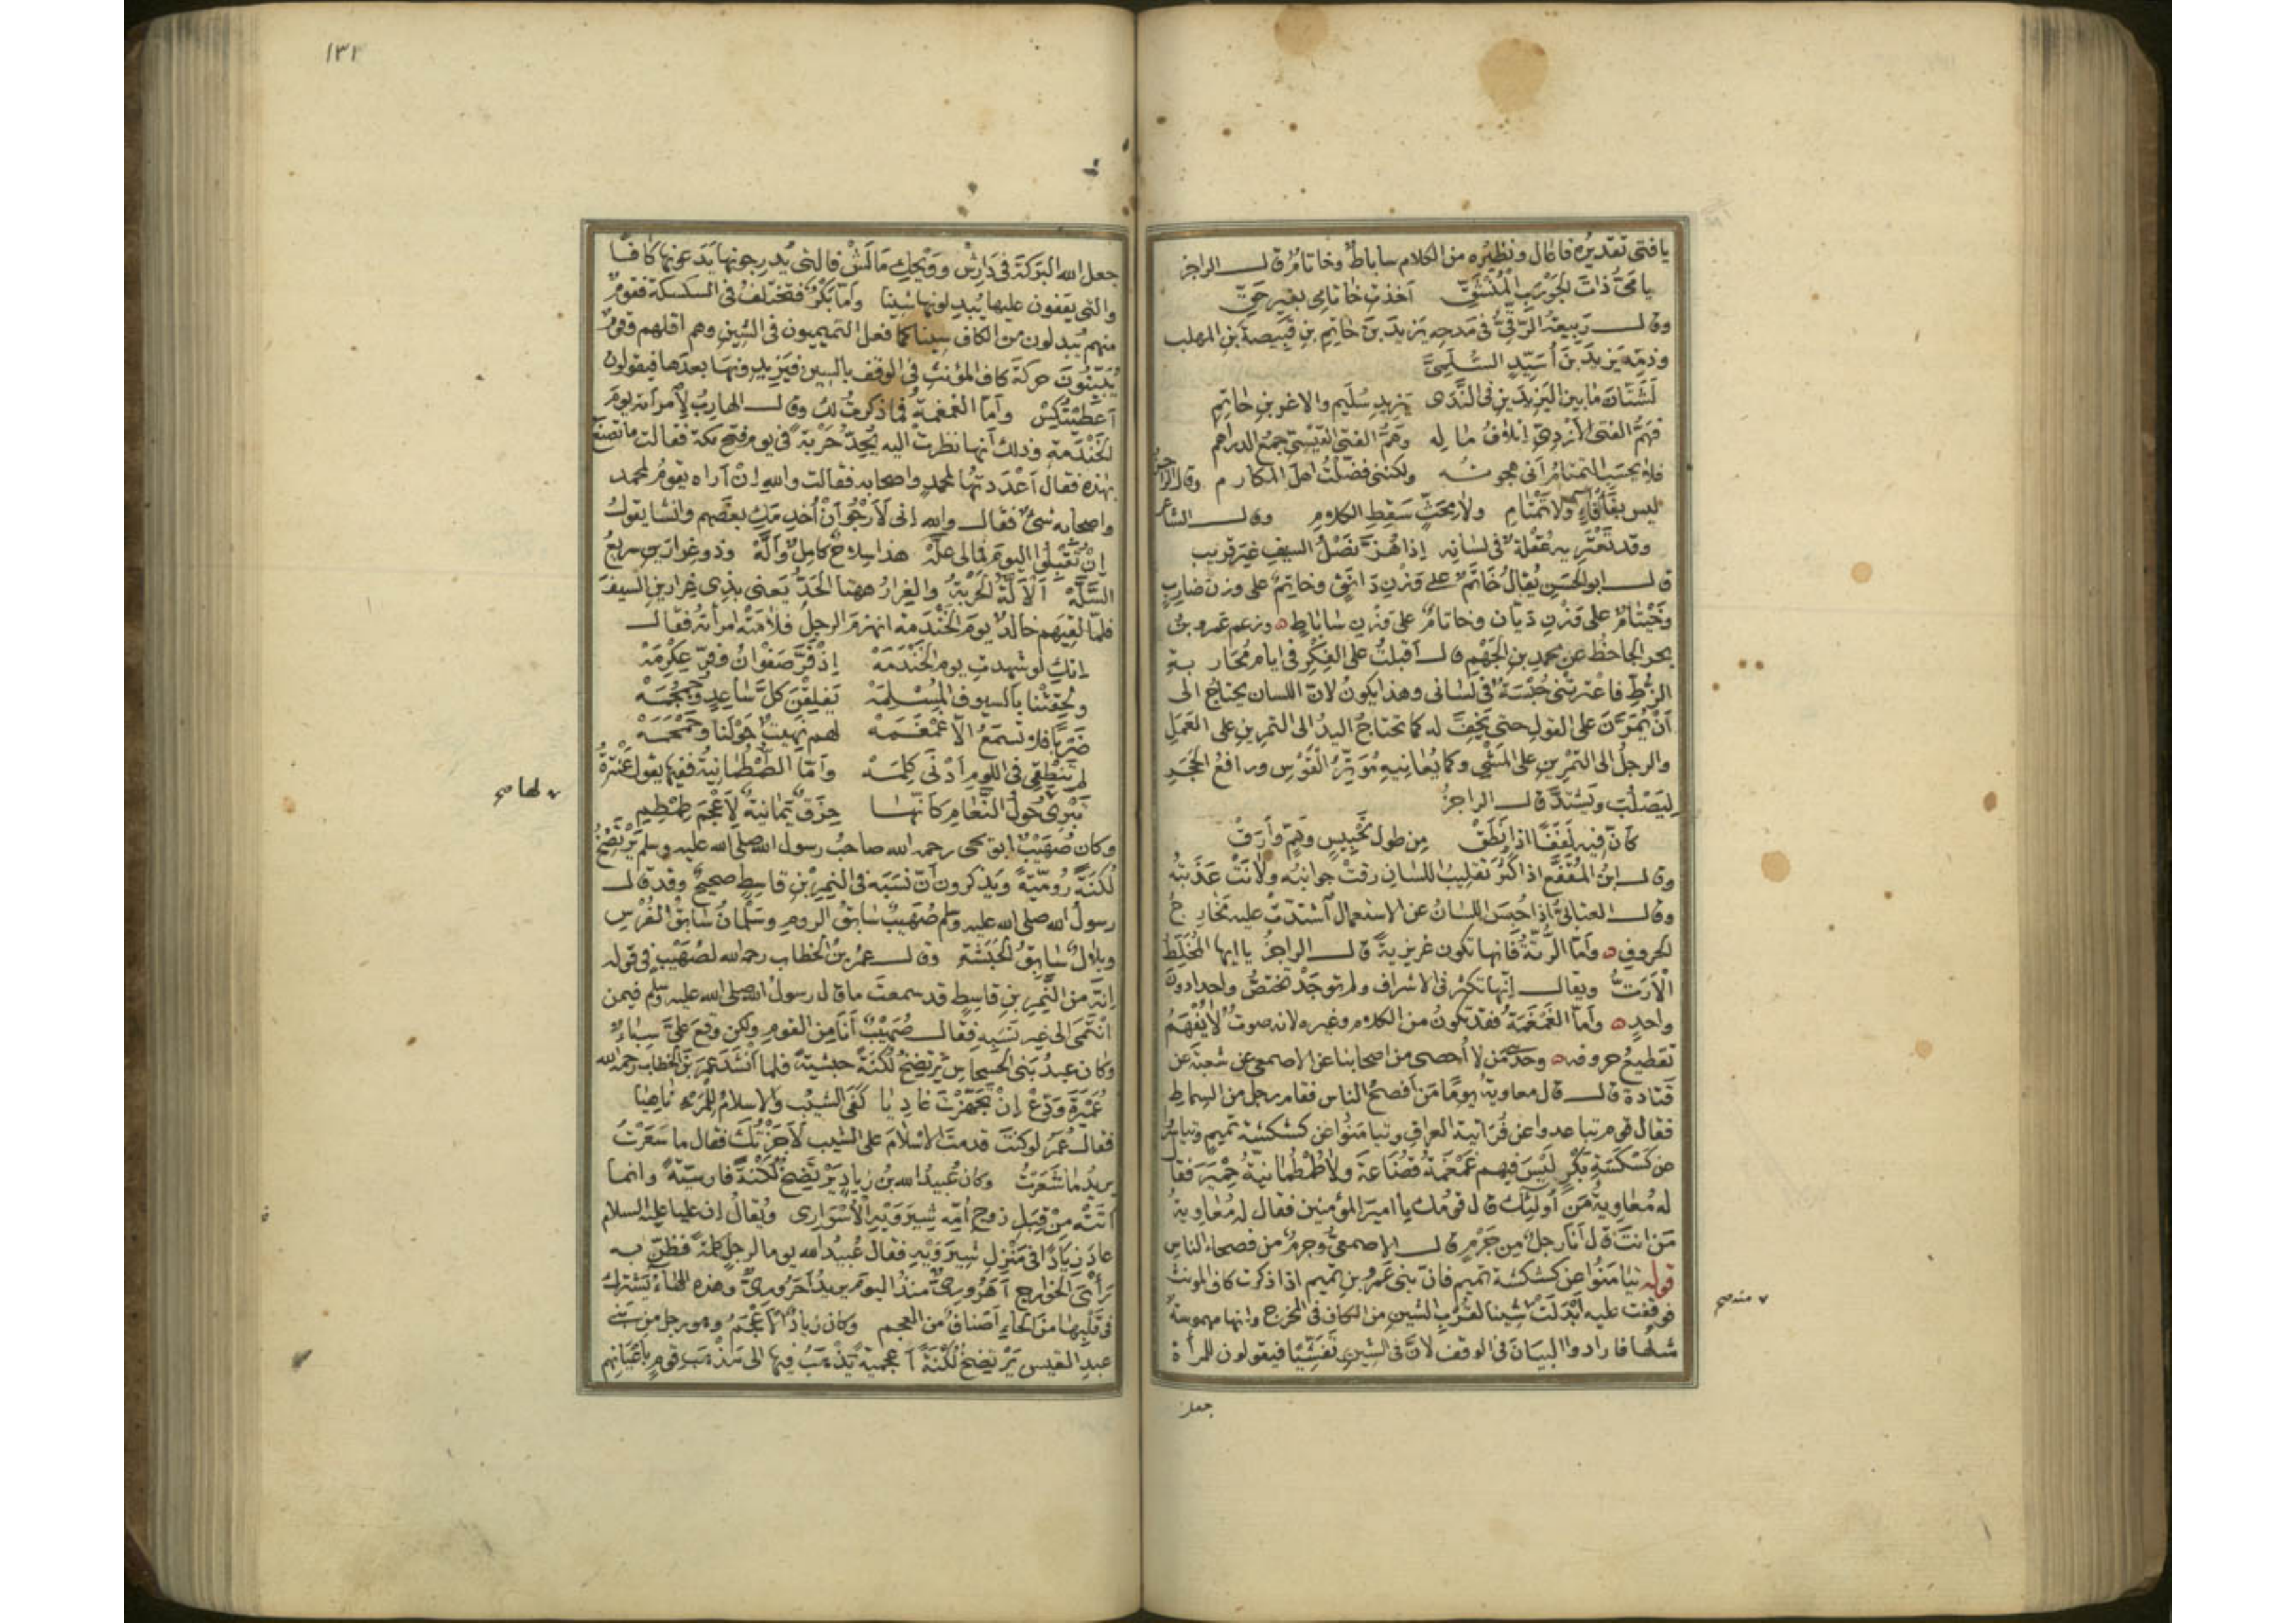 يا فتى تقديره فاعال ونظيره من الكلام ساباط وخاتام قال الراجز
يا مي ذات الجورب المنشق أخذت خاتامي بغير حق
وقال ربيعة الرقي في مدحه يزيد بن حاتم بن قبيصة بن المهلب
وذمه يزيد بن أسيد السلمي
لشتان ما بين اليزيدين في الندى يزيد سليم والاغر بن حاتم
فهم الفتى الأزدي إتلاف ماله وهم الفتى القيسي جمع الدراهم
فلا يحسب التمتام أني هجوته ولكنني فضلت أهل المكارم وقال الراجز
ليس بفأفاء ولا تمتام ولا محث سقط الكلام وقال الشاعر
وقد تعتريه عقلة في لسانه إذا هز نصل السيف غير قريب
قال ابو الحسن يقال خاتم على وزن دانق وخاتم على وزن ضارب
وخيتام على وزن ديان وخاتام على وزن ساباط وزعم عمرو بن
بحر الجاحظ عن محمد بن الجهم قال أقبلت على الفكر في ايام محاربة
الزط فاعترتني حبسة في لساني وهذا يكون لان اللسان يحتاج الى
أن يمرن على القول حتى يخف له كما تحتاج اليد الى التمرين على العمل
والرجل الى التمرين على المشي وكما يعانيه موتر القوس ورافع الحجر
ليصلب ويشتد قال الراجز
كأن فيه لففا اذا نطق من طول تحبيس وهم وأرق
وقال ابن المقفع اذا كثر تقليب اللسان رقت جوانبه ولانت عذبته
وقال العتابي اذا حبس اللسان عن الاستعمال اشتدت عليه مخارج
الحروف وأما الرتة فانها تكون غريزية قال الراجز يا ايها المخلط
الأرت ويقال إنها تكثر في الاشراف ولم توجد تختص واحدا دون
واحد وأما الغمغمة فقد تكون من الكلام وغيره لانه صوت لا يفهم
تقطيع حروفه وحدثني من لا أحصي من اصحابنا عن الاصمعي عن شعبة عن
قتادة قال قال معاوية يوما من أفصح الناس فقام رجل من السماط
فقال قوم تباعدوا عن فراتية العراق وتيامنوا عن كشكشة تميم وتياسروا
عن كسكسة بكر ليس فيهم غمغمة قضاعة ولا طمطمانية حمير فقال
له معاوية من أولئك قال قومك يا امير المؤمنين فقال له معاوية
من انت قال أنا رجل من جرم قال الاصمعي وجرم من فصحاء الناس
قوله تيامنوا عن كشكشة تميم فان بني عمرو بن تميم اذا ذكرت كاف المونث
فوقفت عليه أبدلت شينا لقرب الشين من الكاف في المخرج وانها مهموسة
مثلها فارادوا البيان في الوقف لان في الشين تفشيا فيقولون للمرأة
منه صح
جعل
١٣٢
جعل الله البركة في دارش وويحك مالش فالتي يدرجونها يدعونها كافا
والتي يقفون عليها يبدلونها شينا وأما بكر فتختلف في السكسكة فقوم
منهم يبدلون من الكاف سينا كما فعل التميميون في الشين وهم اقلهم وقوم
يبينون حركة كاف المؤنث في الوقف بالسين فيزيدونها بعدها فيقولون
أعطيتكس وأما الغمغمة فما ذكرت لك وقال الهارب لأمرأته يوم
الخندمة وذلك أنها نظرت اليه يحد حربة في يوم فتح مكة فقالت ما تصنع
بهذه فقال أعددتها لمحمد واصحابه فقالت والله ان أراه يقوم لمحمد
واصحابه شئ فقال والله انى لأرجو أن أخدمك بعضهم وانشا يقول
إن تقبلوا اليوم فمالى عله هذا سلاح كامل وأله وذو غرارين سريع
السله الألة الحربة والغرار ههنا الحد يعني بذي غرارين السيف
فلما لقيهم خالد يوم الخندمة انهزم الرجل فلامته امرأته فقال
انك لو شهدت يوم الخندمه إذ فر صفوان وفر عكرمه
ولحقتنا بالسيوف المسلمه يفلقن كل ساعد وجمجمه
ضربا فلا تسمع الا غمغمه لهم نهيت حولنا وحمحمه
لم تنطقي في اللوم أدنى كلمه وأما الطمطمانية ففيها يقول عنترة
تبري حول النعام كأنها حزق يمانية لأعجم طمطم
لها صح
وكان صهيب ابو يحيى رحمه الله صاحب رسول الله صلى الله عليه وسلم يرتضخ
لكنة رومية ويذكرون أن نسبه في النمر بن قاسط صحيح وقد قال
رسول الله صلى الله عليه وسلم صهيب سابق الروم وسلمان سابق الفرس
وبلال سابق الحبشة وقال عمر بن الخطاب رحمه الله لصهيب في قوله
إنه من النمر بن قاسط قد سمعت ما قال رسول الله صلى الله عليه وسلم فيمن
انتمى الى غير نسبه فقال صهيب أنا من القوم ولكن وقع علي سباء
وكان عبد بني الحسحاس يرتضخ لكنة حبشية فلما أنشد عمر بن الخطاب رحمه الله
عميرة ودع إن تجهزت غاديا كفى الشيب والاسلام للمرء ناهيا
فقال عمر لو كنت قدمت الاسلام على الشيب لأجزتك فقال ما سعرت
يريد ما شعرت وكان عبيد الله بن زياد يرتضخ لكنة فارسية وانما
أتته من قبل زوج أمه شيرويه الأسواري ويقال إن عليا عليه السلام
عاد زيادا في منزل شيرويه فقال عبيد الله يوما لرجل كلمة فظن به
رأي الخوارج أهروري منذ اليوم يريد أحروري وهذه الهاء يشترك
في قلبها من الحاء أصناف من العجم وكان زياد الأعجم وهو رجل من بني
عبد القيس يرتضخ لكنة أعجمية يذهب فيها الى مذهب قوم باعيانهم